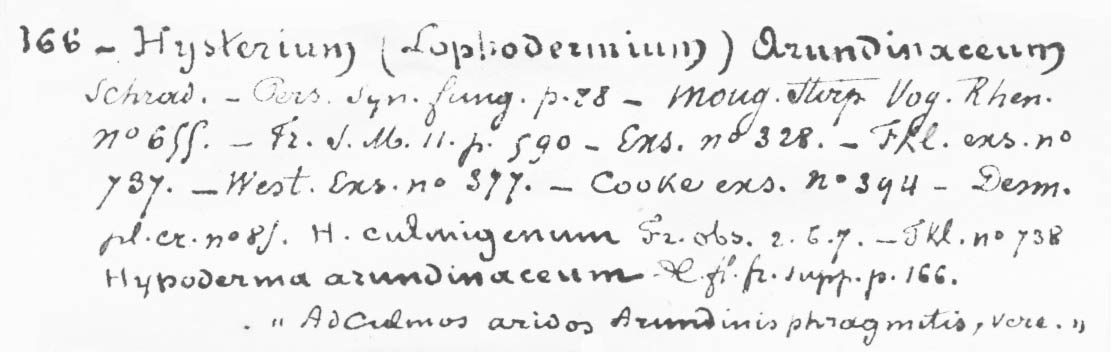 166 - Hysterium (Lophodermium) Arundinaceum
Schrad. - Pers. Syn. fung. p. 28 - Moug. Stirp Vog. Rhen.
no 655. - Fr. S. M. 11. p. 590 - Exs. no 328. - Fkl. exs. no
737. - West. Exs. no 377. - Cooke exs. no 394 - Desm.
pl. cr. no 85. H. culmigenum Fr. obs. 2. 6. 7. - Fkl. no 738
Hypoderma arundinaceum fl. fr. supp. p. 166.
. " Ad Culmos aridos Arundinis phragmitis, vere. "